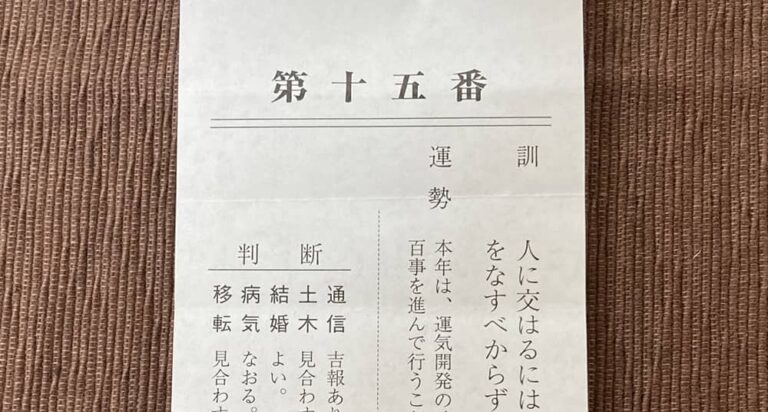 第十五番
訓
人に交はるには
をなすべからず
運勢
本年は、運気開発の
百事を進んで行うこ
判断
通信 吉報あり
土木 見合わす
結婚 よい。
病気 なおる。
移転 見合わす